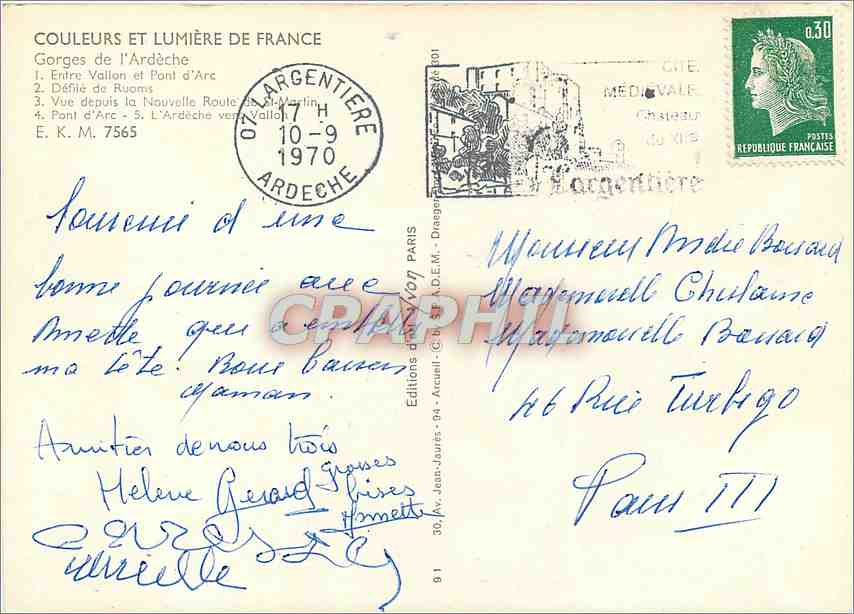 COULEURS ET LUMIÈRE DE FRANCE
Gorges de l'Ardèche
1. Entre Vallon et Pont d'Arc
2. Défilé de Ruoms
3. Vue depuis la Nouvelle Route de St-Martin
4. Pont d'Arc - 5. L'Ardèche vers Vallon
E. K. M. 7565
07 LARGENTIERE
17 H
10-9
1970
ARDECHE
CITE
MÉDIÉVALE
Chateau
du XIIe
Largentière
0,30
POSTES
REPUBLIQUE FRANÇAISE
Souvenir d'une
bonne journée avec
Annette qui a
ma tête. Bons baisers
Maman.
Amitiés de nous trois
Hélène Gerard
grosses
bises
Annette
Editions d'art Yvon PARIS
91 30, Av. Jean-Jaurès - 94 - Arcueil - (C. by S.P.A.D.E.M. - Draeger
301
Monsieur André Bossard
Mademoiselle Ghislaine
Mademoiselle Bossard
46 Rue Turbigo
Paris III
CPAPHIL